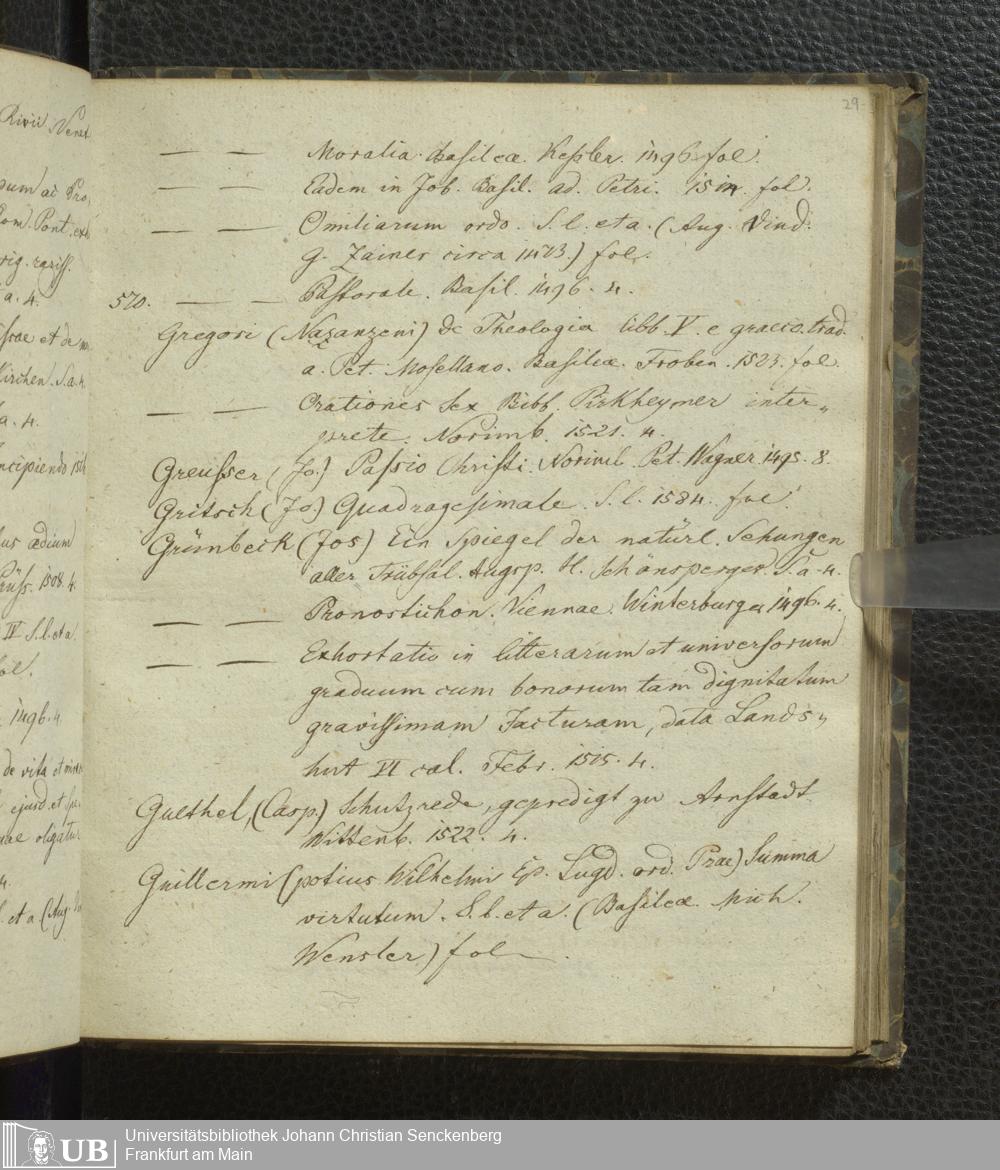 29.
— — Moralia. Basileæ. Keßler. 1496. fol.
— — Eadem in Job. Basil. ad. Petri. 1514. fol.
— — Omiliarum ordo. S. l. et a. (Aug. Vind.
G. Zainer circa 1473.) fol.
570. — — Pastorale. Basil. 1496. 4.
Gregori (Nazanzeni) de Theologia libb. V. e graeco trad.
a. Pet. Mosellano. Basiliæ. Froben. 1523. fol.
— — Orationes sex Bibb. Pirkheymer inter„
prete. Norimb. 1521. 4.
Greusser, (Jo.) Passio Christi. Norimb. Pet. Wagner. 1495. 8.
Gritsch (Jo.) Quadragesimale. S. l. 1584. fol.
Grünbeck (Jos) Ein Spiegel der natürl. Sehungen
aller Trübsal. Augsp. H. Schönsperger. S. a. 4.
— — Pronostichon. Viennae. Winterburger 1496. 4.
— — Exhortatio in litterarum et universorum
graduum cum bonorum tam dignitatum
gravissimam Jacturam, data Lands„
hut VI cal. Febr. 1515. 4.
Guethel, (Casp.) Schutzrede, gepredigt zu Arnstadt.
Wittenb. 1522. 4.
Guillermi (potius Wilhelmi Ep. Lugd. ord. Prae) Summa
virtutum. S. l. et a. (Basileæ. Mich.
Wensler) fol.
Universitätsbibliothek Johann Christian Senckenberg
UB Frankfurt am Main